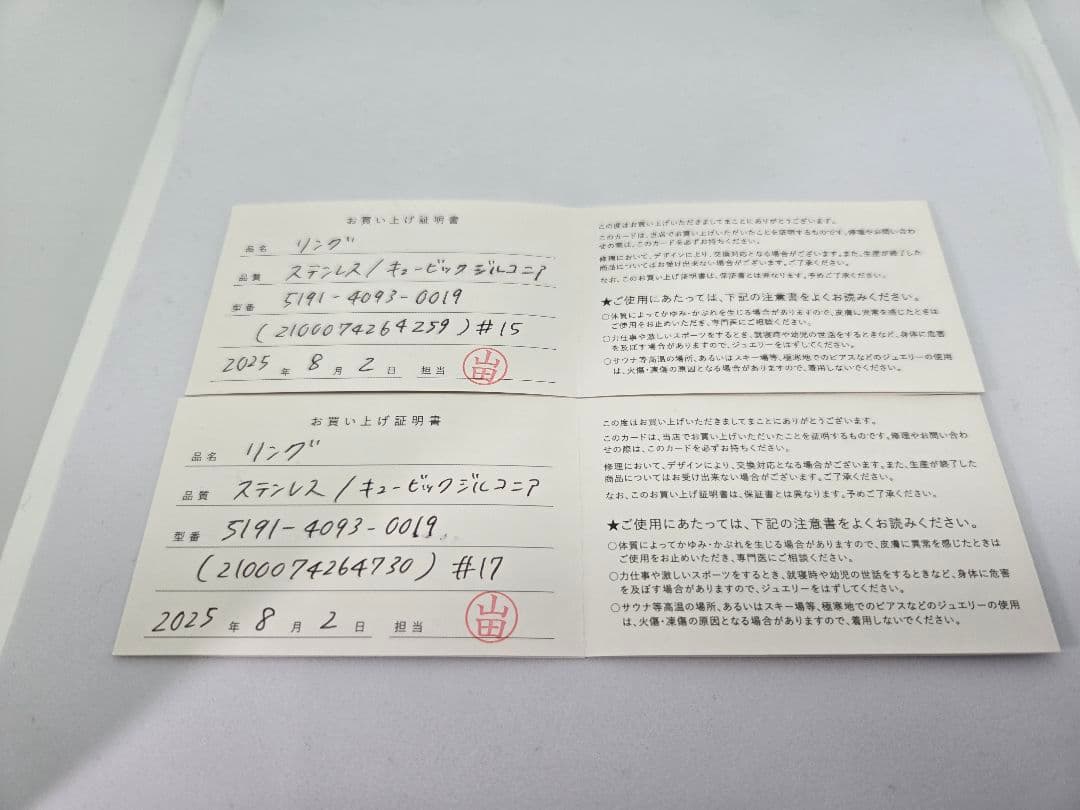 お買い上げ証明書
品名 リング
品質 ステンレス/キュービックジルコニア
型番 5191-4093-0019
(2100074264259)#15
2025 年 8 月 2 日 担当 山田
この度はお買い上げいただきましてまことにありがとうございます。
このカードは、当店でお買い上げいただいたことを証明するものです。修理やお問い合わ
せの際は、このカードを必ずお持ちください。
修理において、デザインにより、交換対応となる場合がございます。また、生産が終了した
商品についてはお受け出来ない場合がございます。ご了承ください。
なお、このお買い上げ証明書は、保証書とは異なります。予めご了承ください。
★ご使用にあたっては、下記の注意書をよくお読みください。
○体質によってかゆみ・かぶれを生じる場合がありますので、皮膚に異常を感じたときは
ご使用をお止めいただき、専門医にご相談ください。
○力仕事や激しいスポーツをするとき、就寝時や幼児の世話をするときなど、身体に危害
を及ぼす場合がありますので、ジュエリーをはずしてください。
○サウナ等高温の場所、あるいはスキー場等、極寒地でのピアスなどのジュエリーの使用
は、火傷・凍傷の原因となる場合がありますので、着用しないでください。
お買い上げ証明書
品名 リング
品質 ステンレス/キュービックジルコニア
型番 5191-4093-0019
(2100074264730)#17
2025 年 8 月 2 日 担当 山田
この度はお買い上げいただきましてまことにありがとうございます。
このカードは、当店でお買い上げいただいたことを証明するものです。修理やお問い合わ
せの際は、このカードを必ずお持ちください。
修理において、デザインにより、交換対応となる場合がございます。また、生産が終了した
商品についてはお受け出来ない場合がございます。ご了承ください。
なお、このお買い上げ証明書は、保証書とは異なります。予めご了承ください。
★ご使用にあたっては、下記の注意書をよくお読みください。
○体質によってかゆみ・かぶれを生じる場合がありますので、皮膚に異常を感じたときは
ご使用をお止めいただき、専門医にご相談ください。
○力仕事や激しいスポーツをするとき、就寝時や幼児の世話をするときなど、身体に危害
を及ぼす場合がありますので、ジュエリーをはずしてください。
○サウナ等高温の場所、あるいはスキー場等、極寒地でのピアスなどのジュエリーの使用
は、火傷・凍傷の原因となる場合がありますので、着用しないでください。